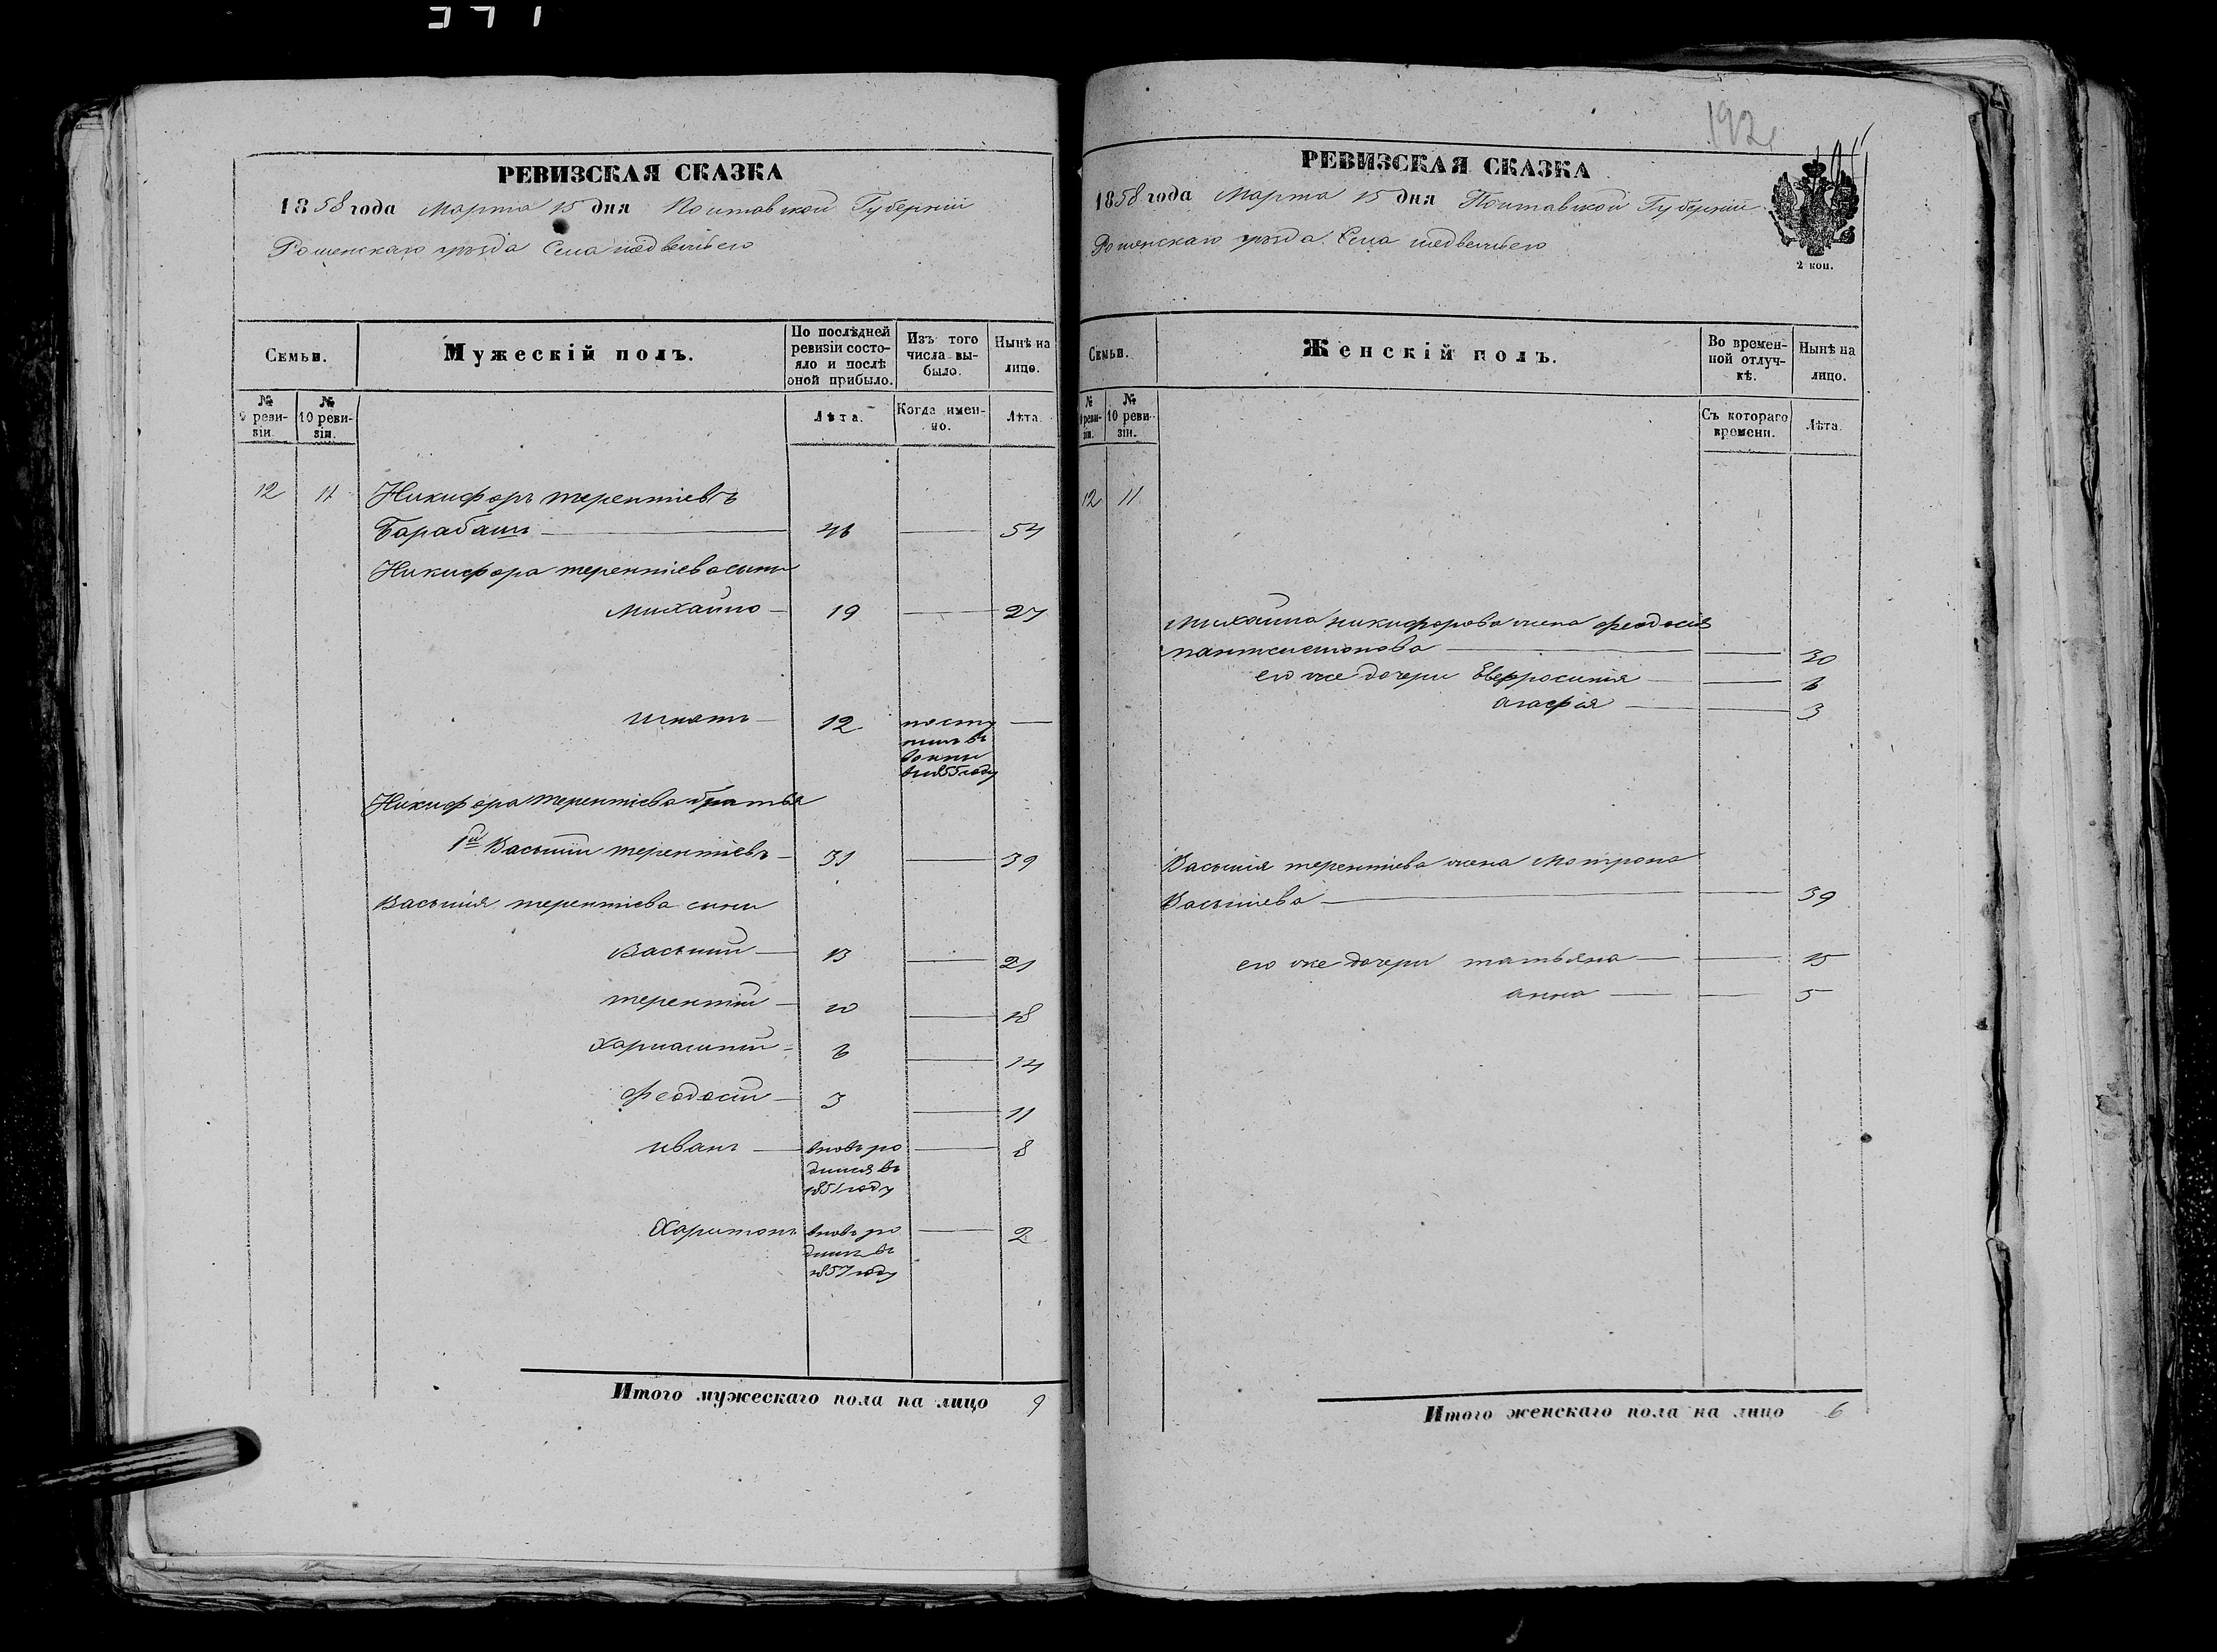 РЕВИЗСКАЯ СКАЗКА
1858 года Марта 15 дня Полтавской Губерніи
Роменскаго уѣзда Села медвежьего
Семьи.
Мужескій полъ.
По послѣдней ревизіи состо-
яло и послѣ
оной прибыло.
Изъ того
числа вы-
было.
Нынѣ на
лицо.
№
9 реви-
зіи.
№
10 реви-
зіи.
Лѣта.
Когда имен-
но.
Лѣта.
12 11 Никифоръ терентіевъ
Барабашъ 46 54
Никифора терентіева сыны
михайло 19 27
игнатъ 12 посту
пилъ въ
въ 1855 году
Никифора терентіева братья
1й Василий терентіевъ 31 39
Василія терентіева сыны
Василий 13 21
терентій 10 18
харлампий 6 14
феодосий 3 11
иванъ вновь ро
дился въ
1851 году 8
Харитонъ вновь ро
дилъ въ
1857 году 2
Итого мужескаго пола на лицо 9
192
РЕВИЗСКАЯ СКАЗКА
1858 года Марта 15 дня Полтавской Губерніи
Роменскаго уѣзда Села медвежьего
2 коп.
Семьи.
Женскій полъ.
Во времен-
ной отлуч-
кѣ.
Нынѣ на
лицо.
№
9 реви-
зіи.
№
10 реви-
зіи.
Съ котораго
времени.
Лѣта.
12 11
михайла никифорова жена феодосія
пантелемонова 30
его же дочери Евфросинія 6
агафія 3
Василія терентіева жена мотрона
Василіева 39
его же дочери татьяна 15
анна 5
Итого женскаго пола на лицо 6